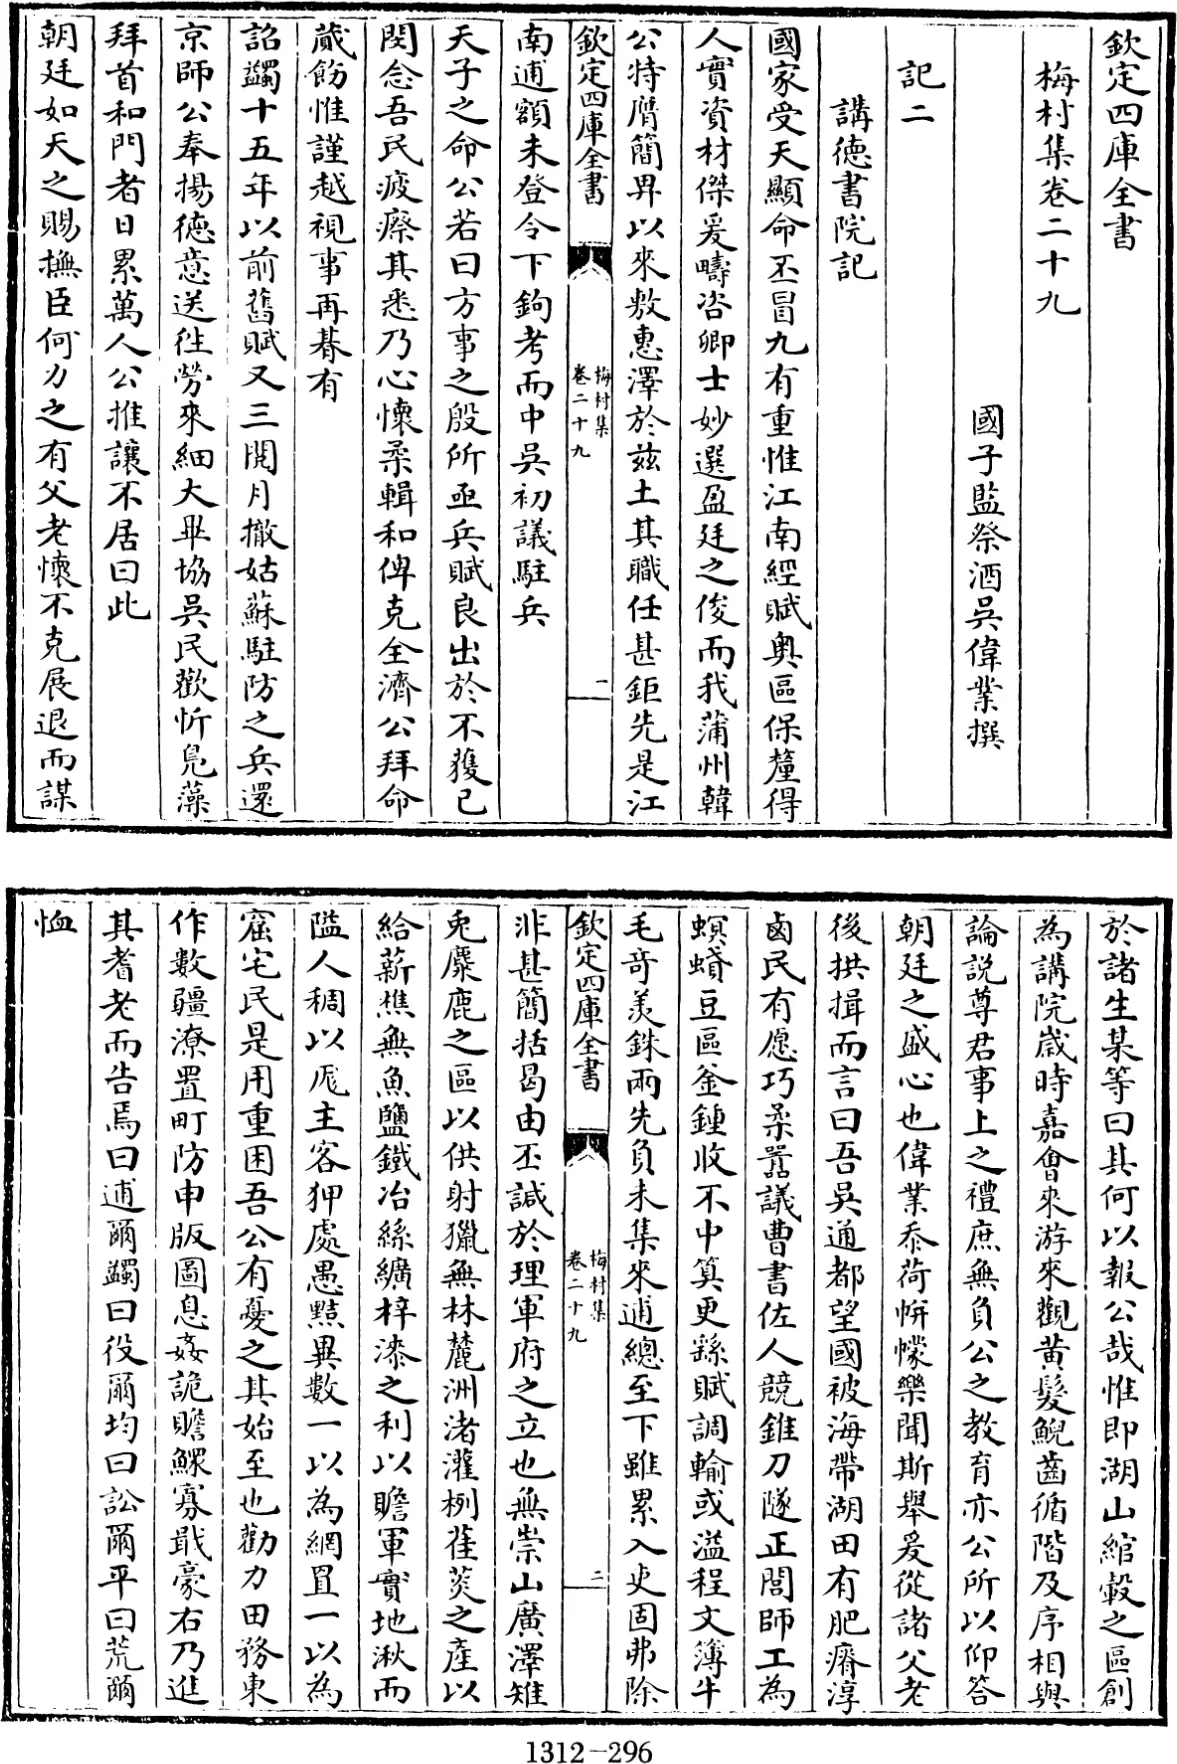 欽定四庫全書
梅村集卷二十九
國子監祭酒吳偉業撰
記二
講德書院記
國家受天顯命丕冒九有重惟江南經賦奧區保釐得
人實資材傑爰疇咨卿士妙選盈廷之俊而我蒲州韓
公特膺簡畀以來敷惠澤於兹土其職任甚鉅先是江
欽定四庫全書
梅村集
卷二十九
一
南逋額未登令下鉤考而中吳初議駐兵
天子之命公若曰方事之殷所亟兵賦良出於不獲已
閔念吾民疲瘵其悉乃心懷柔輯和俾克全濟公拜命
蕆飭惟謹越視事再朞有
詔蠲十五年以前舊賦又三閱月撤姑蘇駐防之兵還
京師公奉揚德意送徃勞來細大畢協吳民歡忻鳧藻
拜首和門者日累萬人公推讓不居曰此
朝廷如天之賜撫臣何力之有父老懷不克展退而謀
於諸生某等曰其何以報公哉惟即湖山綰轂之區創
為講院嵗時嘉會來游來觀黄髮鯢齒循階及序相與
論說尊君事上之禮庶無負公之教育亦公所以仰答
朝廷之盛心也偉業忝荷帡幪樂聞斯舉爰從諸父老
後拱揖而言曰吾吳通都望國被海帶湖田有肥瘠淳
鹵民有愿巧柔嚚議曹書佐人競錐刀隧正閭師工為
螟蟘豆區釜鍾收不中算更繇賦調輸或溢程文簿牛
毛竒羡銖兩先負未集來逋總至下雖累入吏固弗除
欽定四庫全書
梅村集
卷二十九
二
非甚簡括曷由丕諴於理軍府之立也無崇山廣澤雉
兎麋鹿之區以供射獵無林麓洲渚灌栵萑葖之產以
給薪樵無魚鹽鐵冶絲纊梓漆之利以贍軍實地湫而
隘人稠以厖主客狎處愚黠異數一以為網罝一以為
窟宅民是用重困吾公有憂之其始至也勸力田務東
作數疆潦置町防申版圖息姦詭贍鰥寡戢豪右乃進
其耆老而告焉曰逋爾蠲曰役爾均曰訟爾平曰荒爾
恤
1312-296